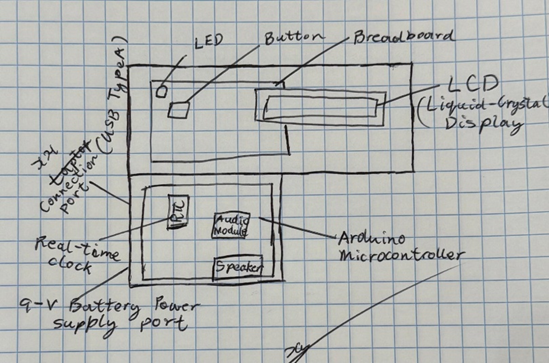 LED
Button
Breadboard
LCD
(Liquid-Crystal
Display
(USB Type A)
Connection
port
RTC
Audio
Module
Speaker
Real-time
clock
Arduino
Microcontroller
9-V Battery Power
supply port